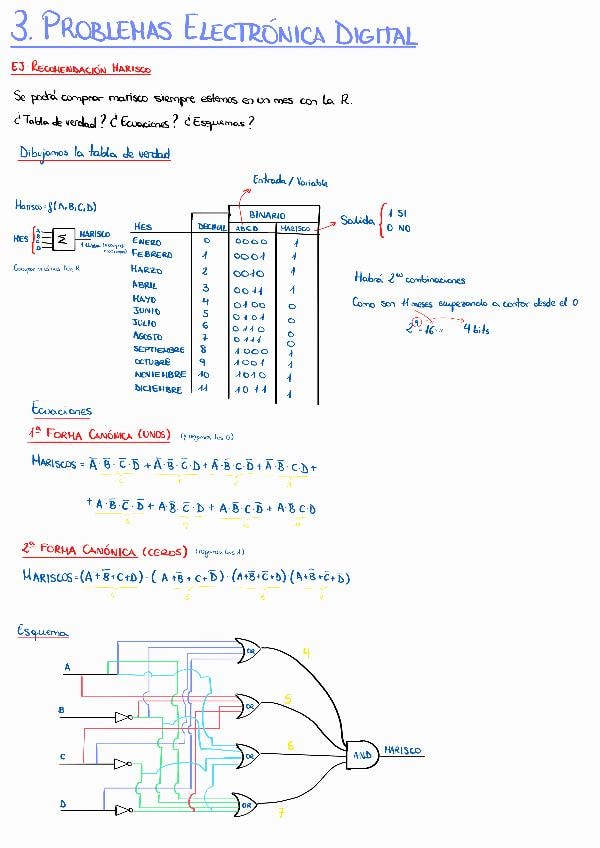 3. PROBLEMAS ELECTRÓNICA DIGITAL
EJ RECOMENDACIÓN MARISCO
Se podrá comprar marisco siempre estemos en un mes con la R.
¿Tabla de verdad? ¿Ecuaciones? ¿Esquemas?
Dibujamos la tabla de verdad
Entrada / Variable
Marisco = f(A,B,C,D)
MES
A
B
C
D
Σ
MARISCO
BINARIO
MES DECIMAL ABCD MARISCO
Salida
1 SI
0 NO
ENERO 0 0000 1
FEBRERO 1 0001 1
MARZO 2 0010 1
ABRIL 3 0011 1
MAYO 4 0100 0
JUNIO 5 0101 0
JULIO 6 0110 0
AGOSTO 7 0111 0
SEPTIEMBRE 8 1000 1
OCTUBRE 9 1001 1
NOVIEMBRE 10 1010 1
DICIEMBRE 11 1011 1
Habrá 2ⁿ combinaciones
Como son 11 meses empezando a contar desde el 0
2⁴ = 16 → 4 bits
Ecuaciones
1ª FORMA CANÓNICA (UNOS)
MARISCOS = A̅·B̅·C̅·D̅ + A̅·B̅·C̅·D + A̅·B̅·C·D̅ + A̅·B̅·C·D +
+ A·B̅·C̅·D̅ + A·B̅·C̅·D + A·B̅·C·D̅ + A·B̅·C·D
2ª FORMA CANÓNICA (CEROS)
MARISCOS = (A+B̅+C+D) · (A+B̅+C+D̅) · (A+B̅+C̅+D) (A+B̅+C̅+D̅)
Esquema
A
B
C
D
OR
OR
OR
OR
4
5
6
7
AND
MARISCO